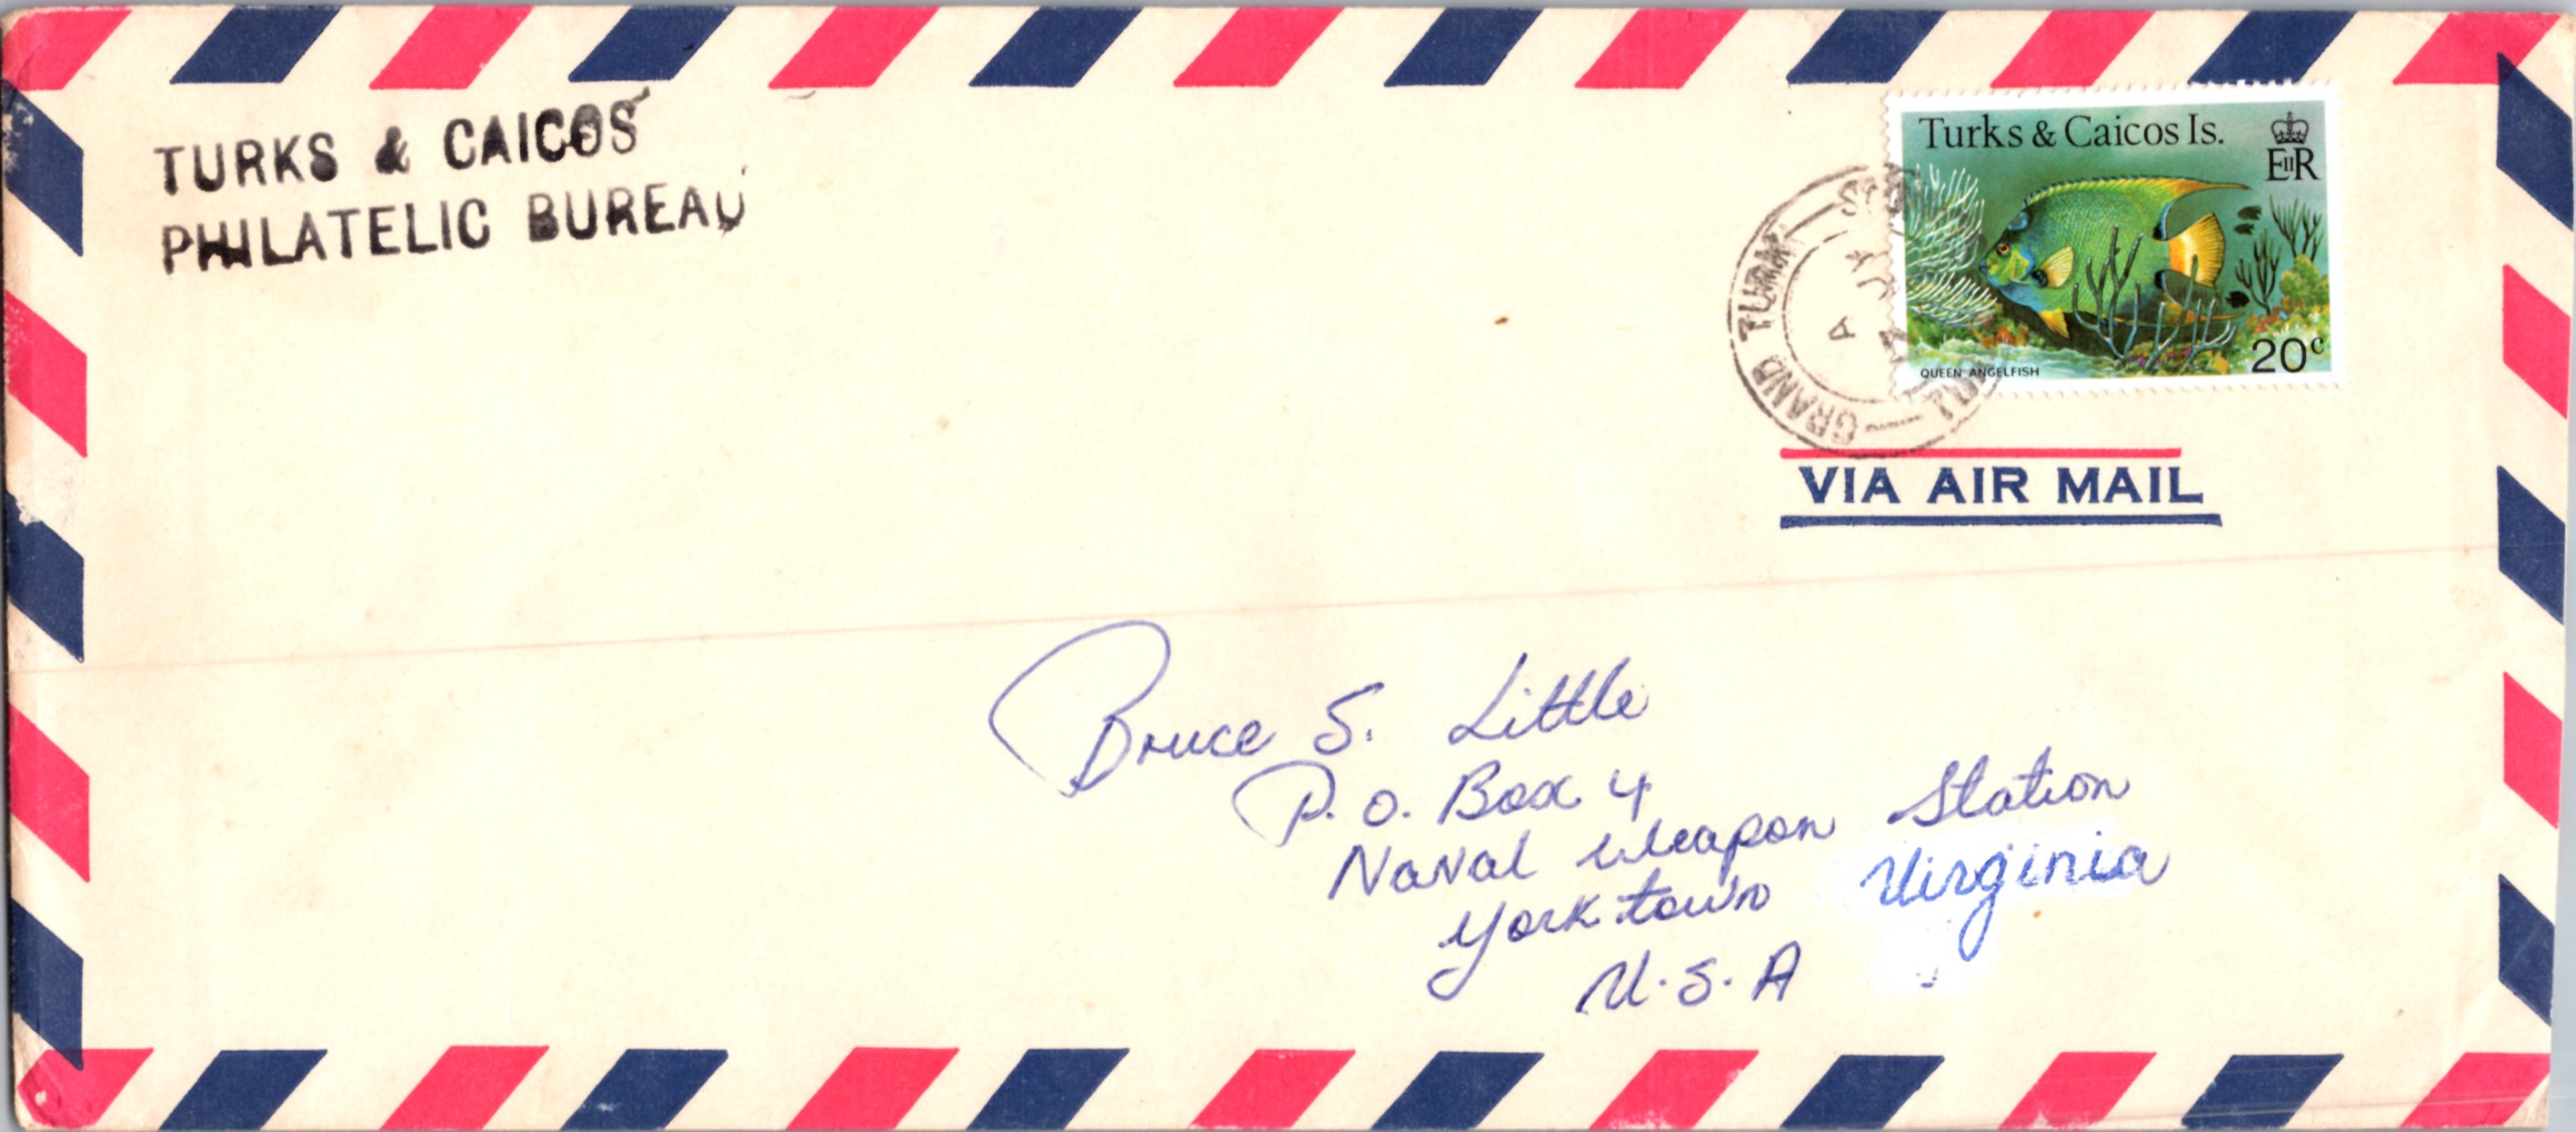 TURKS & CAICOS
PHILATELIC BUREAU
Turks & Caicos Is.
EIIR
QUEEN ANGELFISH
20c
GRAND TURK
A
JY
VIA AIR MAIL
Bruce S. Little
P.O. Box 4
Naval Weapon Station
Yorktown Virginia
U.S.A